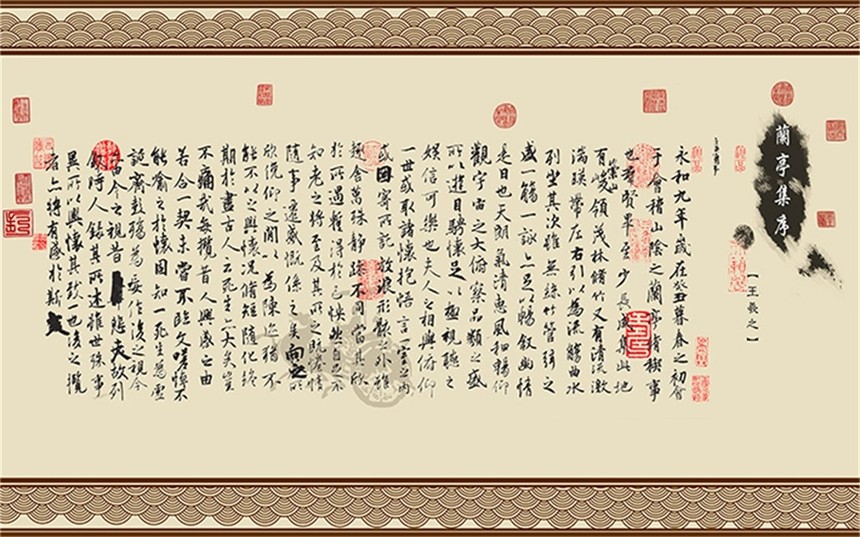 蘭亭集序
【王羲之】
永和九年歲在癸丑暮春之初會
于會稽山陰之蘭亭脩稧事
也羣賢畢至少長咸集此地
有崇山峻領茂林脩竹又有清流激
湍暎帶左右引以為流觴曲水
列坐其次雖無絲竹管弦之
盛一觴一詠亦足以暢叙幽情
是日也天朗氣清惠風和暢仰
觀宇宙之大俯察品類之盛
所以遊目騁懷足以極視聽之
娛信可樂也夫人之相與俯仰
一世或取諸懷抱悟言一室之內
或因寄所託放浪形骸之外雖
趣舍萬殊靜躁不同當其欣
於所遇暫得於己怏然自足不
知老之將至及其所之既惓情
隨事遷感慨係之矣向之所
欣俛仰之閒以為陳迹猶不
能不以之興懷況脩短隨化終
期於盡古人云死生亦大矣豈
不痛哉每攬昔人興感之由
若合一契未嘗不臨文嗟悼不
能喻之於懷固知一死生為虛
誕齊彭殤為妄作後之視今
亦由今之視昔悲夫故列
敘時人錄其所述雖世殊事
異所以興懷其致一也後之攬
者亦將有感於斯文